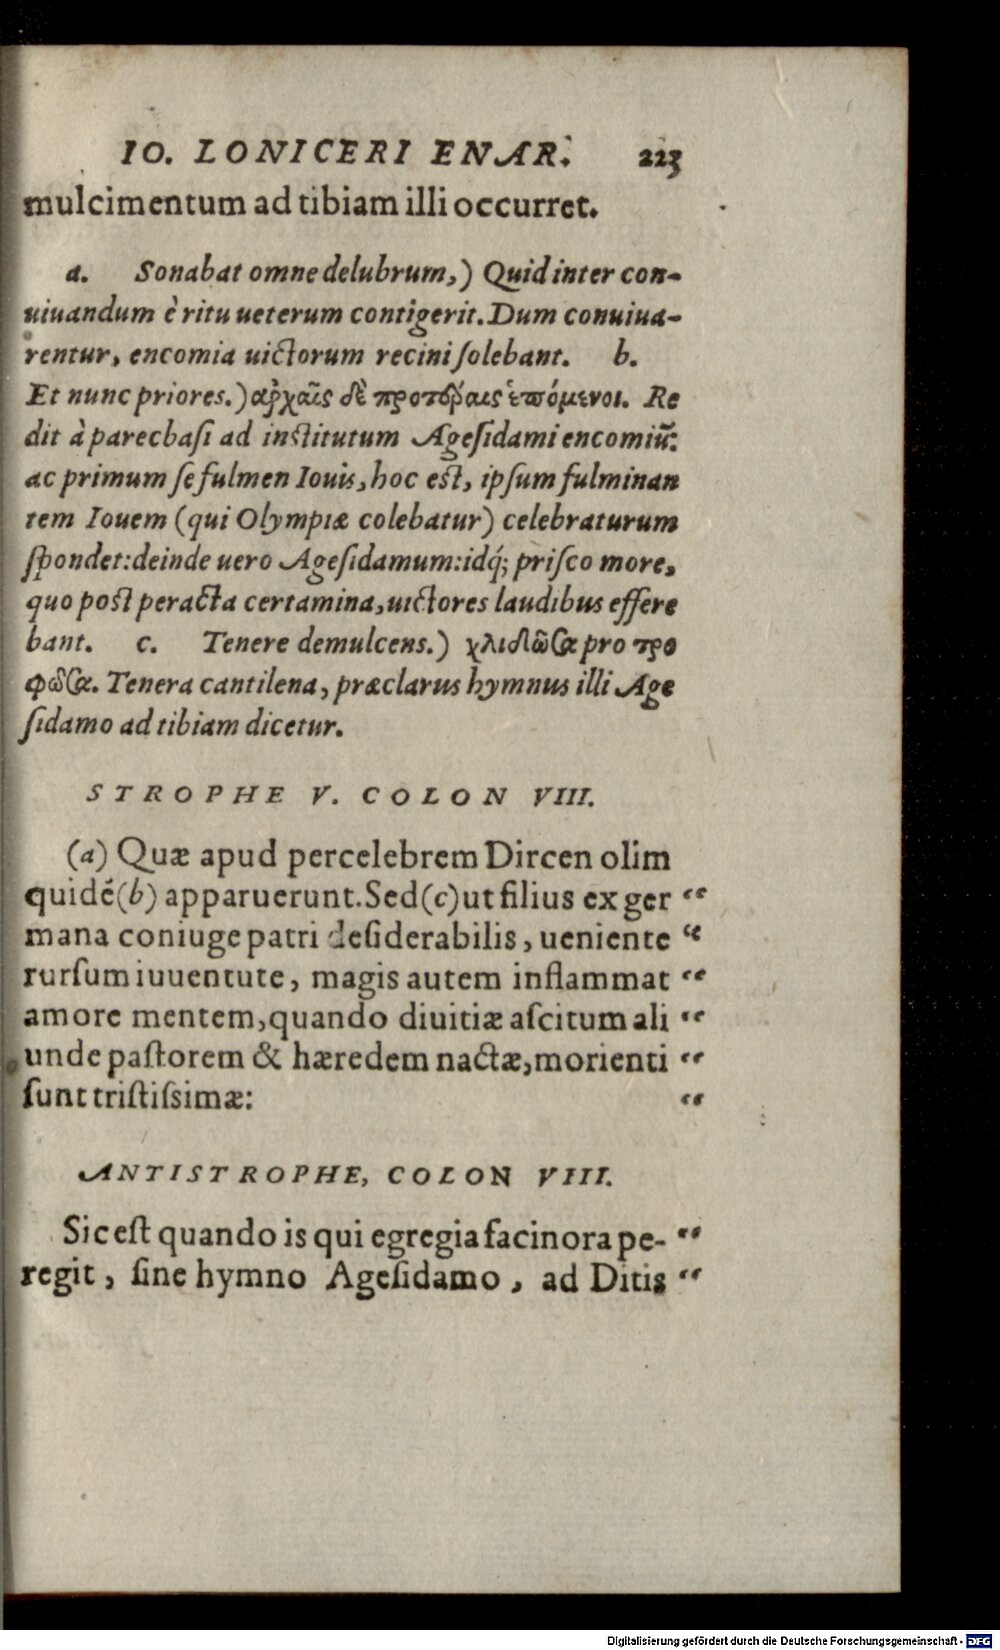 IO. LONICERI ENAR. 223
mulcimentum ad tibiam illi occurret.
a. Sonabat omne delubrum,) Quid inter con-
uiuandum è ritu ueterum contigerit. Dum conuiua-
rentur, encomia uictorum recini ſolebant. b.
Et nunc priores.) ἀρχαῖς δὲ προτέραις ἑπόμενοι. Re
dit à parecbaſi ad inſtitutum Ageſidami encomiũ:
ac primum ſe fulmen Iouis, hoc eſt, ipſum fulminan
tem Iouem (qui Olympiæ colebatur) celebraturum
ſpondet: deinde uero Ageſidamum: idq́; priſco more,
quo poſt peracta certamina, uictores laudibus effere
bant. c. Tenere demulcens.) χλιδῶσα pro τρο
φῶσα. Tenera cantilena, præclarus hymnus illi Age
ſidamo ad tibiam dicetur.
STROPHE V. COLON VIII.
(a) Quæ apud percelebrem Dircen olim
quidẽ (b) apparuerunt. Sed (c) ut filius ex ger “
mana coniuge patri deſiderabilis, ueniente “
rurſum iuuentute, magis autem inflammat “
amore mentem, quando diuitiæ aſcitum ali “
unde paſtorem & hæredem nactæ, morienti “
ſunt triſtiſsimæ: “
ANTISTROPHE, COLON VIII.
Sic eſt quando is qui egregia facinora pe- “
regit, ſine hymno Ageſidamo, ad Ditis “
Digitalisierung gefördert durch die Deutsche Forschungsgemeinschaft - DFG